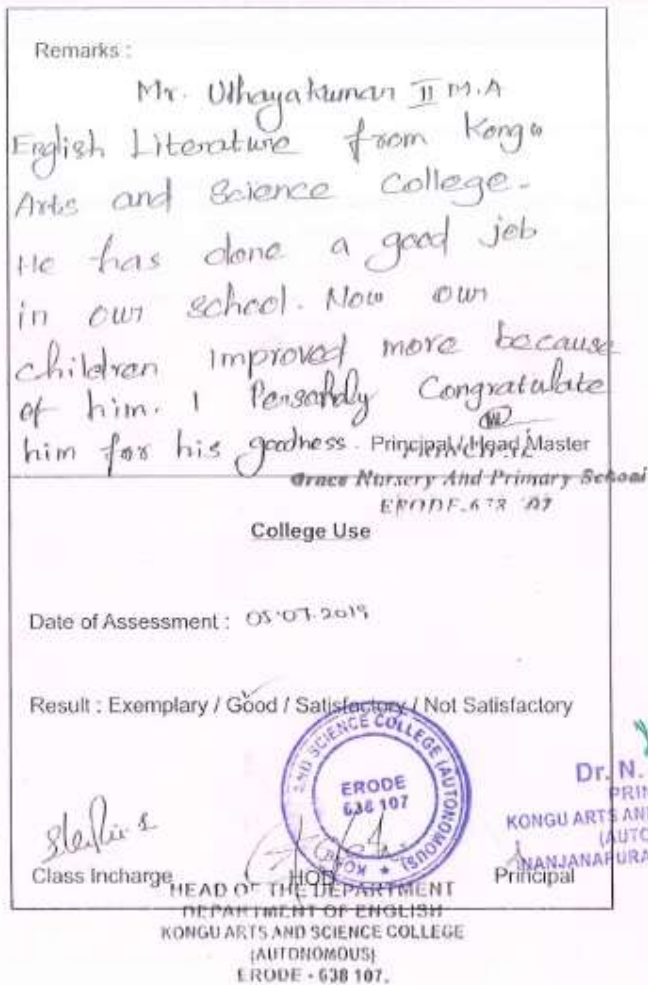 Remarks :
Mr. Uthayakumar II M.A
English Literature from Kongu
Arts and Science College.
He has done a good job
in our school. Now our
children improved more because
of him. I Personally Congratulate
him for his goodness. Principal / Head Master
Grace Nursery And Primary School
ERODE
College Use
Date of Assessment : 05.07.2019
Result : Exemplary / Good / Satisfactory / Not Satisfactory
AND SCIENCE COLLEGE (AUTONOMOUS) ★ KONGU
ERODE
638 107
Dr. N.
PRIN
KONGU ARTS AND
(AUTO
NANJANAPURA
Class Incharge HOD Principal
HEAD OF THE DEPARTMENT
DEPARTMENT OF ENGLISH
KONGU ARTS AND SCIENCE COLLEGE
(AUTONOMOUS)
ERODE - 638 107.